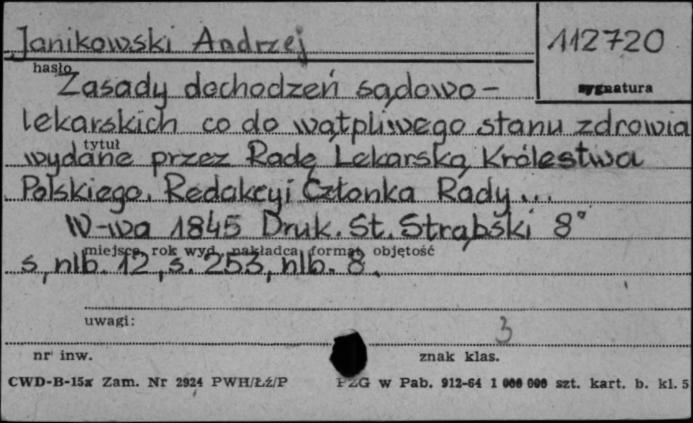 Janikowski Andrzej
112720
hasło
sygnatura
Zasady dochodzeń sądowo-
lekarskich co do wątpliwego stanu zdrowia
tytuł
wydane przez Radę Lekarską Królestwa
Polskiego. Redakcyi Członka Rady...
W-wa 1845 Druk. St. Strąbski 8°
miejsce, rok wyd., nakładca, format, objętość
s, nlb. 12, s. 253, nlb. 8.
uwagi:
3
nr inw.
znak klas.
CWD-B-15x Zam. Nr 2924 PWH/Łź/P
PZG w Pab. 912-64 1 000 000 szt. kart. b. kl. 5